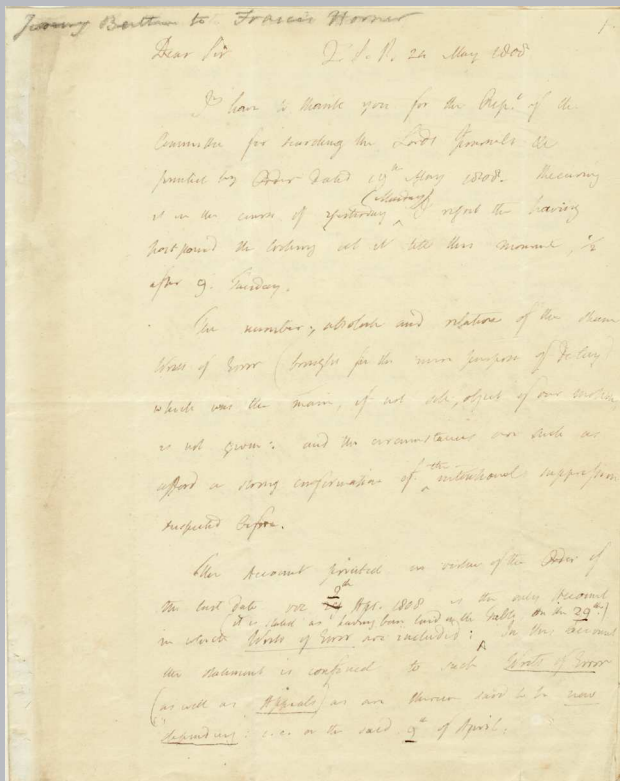 Jeremy Bentham to Francis Horner 1.
Dear Sir Q.S.P. 24 May 1808
I have to thank you for the Rep.t of the
Committee for searching the Lords Journals &c
printed by Order dated 19th May 1808. Receiving
(Monday)
it in the course of yesterday I regret the having
postponed the looking at it till this moment, ½
after 9. Tuesday.
The number, absolute and relative of the sham
Writs of Error (brought for the mere purpose of Delay)
which was the main, if not sole, object of our motion
is not given: and the circumstances are such as
afford a strong confirmation of the intentional suppression
suspected before.
The Account printed in virtue of the Order of
9th
the last date Apr. 1808 is the only Account
(it is stated as having been laid on the Table on the 29th.)
in which Writs of Error are included: In this Account
the statement is confined to such Writs of Error
(as well as Appeals) as are therein said to be now
depending: i.e. on the said 9th of April.